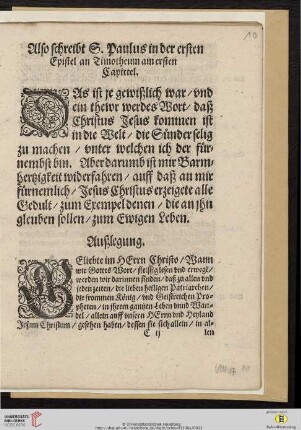 10
Also schreibt S. Paulus in der ersten
Epistel an Timotheum am ersten
Capittel.
DAs ist je gewißlich war / vnd
ein thewr werdes Wort / daß
Christus Jesus kommen ist
in die Welt / die Sünder selig
zu machen / vnter welchen ich der für-
nembst bin. Aber darumb ist mir Barm-
hertzigkeit widerfahren / auff daß an mir
fürnemlich / Jesus Christus erzeigete alle
Gedult / zum Exempel denen / die an jhn
gleuben sollen / zum Ewigen Leben.
Außlegung.
GEliebte im HErrn Christo / Wann
wir Gottes Wort / fleissig lesen vnd erwegen /
werden wir darinnen finden / daß zu allen vnd
jeden zeiten / die lieben heiligen Patriarchen /
die frommen König / vnd Geistreichen Pro-
pheten / in jhrem gantzen Leben vnnd Wan-
del / allein auff vnsern HErrn vnd Heyland
Jesum Christum / gesehen haben / dessen sie sich allein / in al-
C ij
len
UNIVERSITÄTS-
BIBLIOTHEK
HEIDELBERG
© Universitätsbibliothek Heidelberg